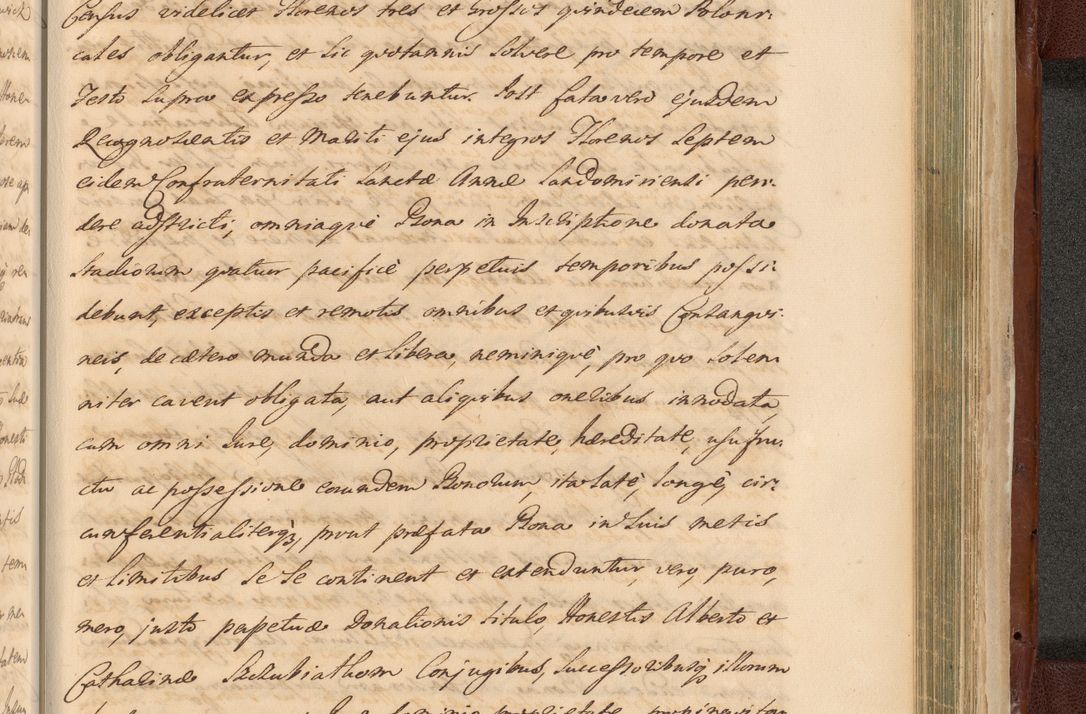 Census videlicet Florenos tres et Grossos quindecim Poloni-
cales obligantur, et sic quotannis solvere pro tempore et
Festo supra expresso tenebuntur. Post fata vero ejusdem
Recognoscentis et Mariti ejus integros Florenos septem
eidem Confraternitati Sanctæ Annæ Sandomiriensi pen-
dere adstricti, omniaque Bona in Inscriptione donata
Stadiorum quatuor pacificè perpetuis temporibus possi-
debunt, exceptis et remotis omnibus et quibusvis Consangvi-
neis, de cætero munda et libera, neminique, pro quo solem-
niter cavent obligata, aut aliquibus oneribus innodata,
cum omni Jure, dominio, proprietate, hæreditate, usufru-
ctu ac possessione eorundem Bonorum, ita latè, longè, cir-
cumferentialiterq3, prout præfata Bona in suis metis
et limitibus se se continent et extenduntur, vero, puro,
mero, justo perpetuæ Donationis titulo, Honestis Alberto et
Catharinæ Conjugibus, Successoribusq3 illorum